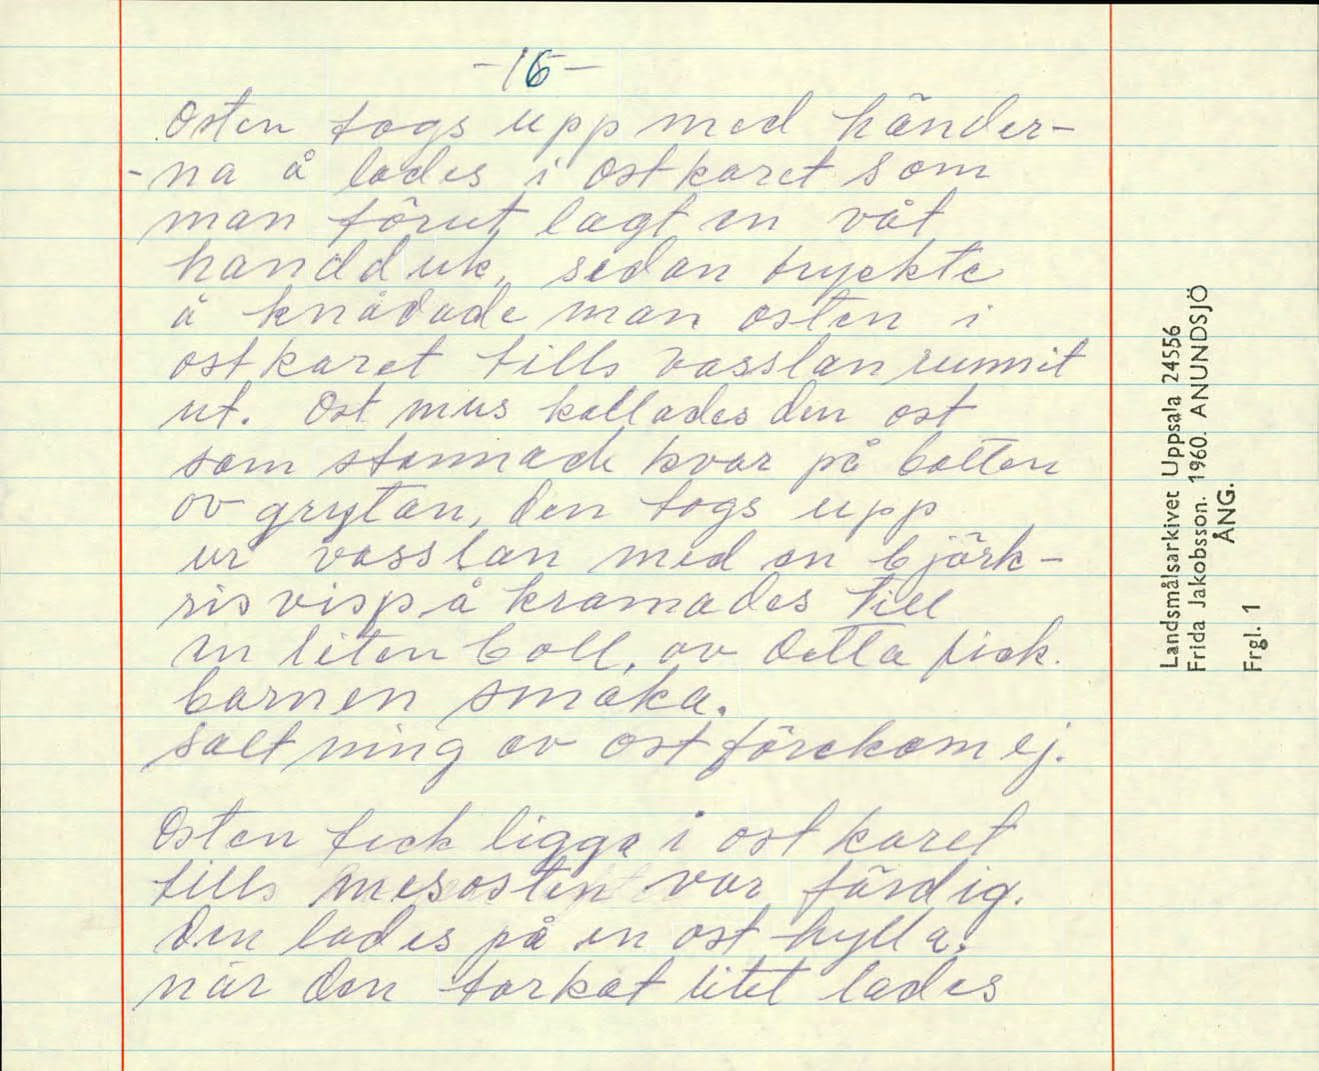 -16-
Osten togs upp med händer-
-na å lades i ostkaret som
man förut lagt en våt
handduk, sedan tryckte
å knådade man osten i
ostkaret tills vasslan runnit
ut. Ost mus kallades den ost
som stannade kvar på botten
av grytan, den togs upp
ur vasslan med en björk-
ris visp å kramades till
en liten boll, av detta fick
barnen smaka.
saltning av ost förekom ej.
Osten fick ligga i ostkaret
tills mesosten var färdig.
Den lades på en ost hylla.
när den torkat litet lades
Landsmålsarkivet Uppsala 24556
Frida Jakobsson. 1960. ANUNDSJÖ
ÅNG.
Frgl. 1